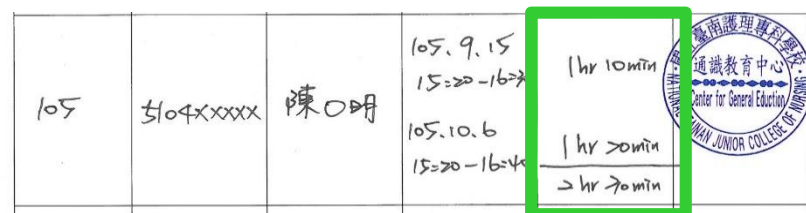 105
5104XXXXX
陳○明
105.9.15
15:20-16:3
1hr 10min
105.10.6
15:20-16:40
1hr 20min
2hr 30min
臺南護理專科學校
通識教育中心
Center for General Eduction
NATIONAL TAINAN JUNIOR COLLEGE OF NURSING